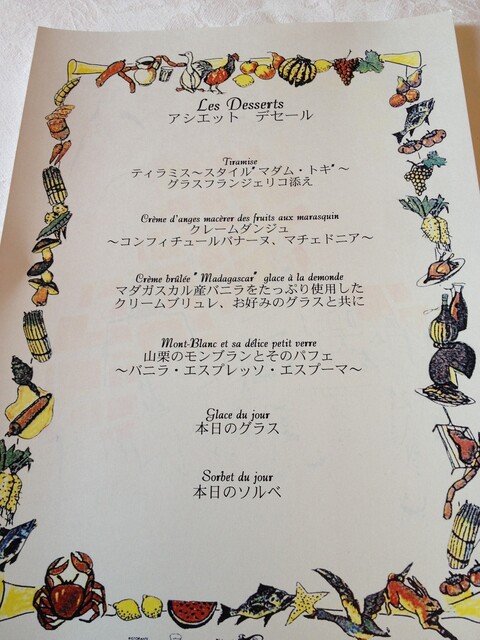 Les Desserts
アシエット デセール
Tiramise
ティラミス～スタイル"マダム・トキ"～
グラスフランジェリコ添え
Crème d'anges macèrer des fruits aux marasquin
クレームダンジュ
～コンフィチュールバナーヌ、マチェドニア～
Crème brûlée "Madagascar" glace à la demonde
マダガスカル産バニラをたっぷり使用した
クリームブリュレ、お好みのグラスと共に
Mont-Blanc et sa délice petit verre
山栗のモンブランとそのパフェ
～バニラ・エスプレッソ・エスプーマ～
Glace du jour
本日のグラス
Sorbet du jour
本日のソルベ